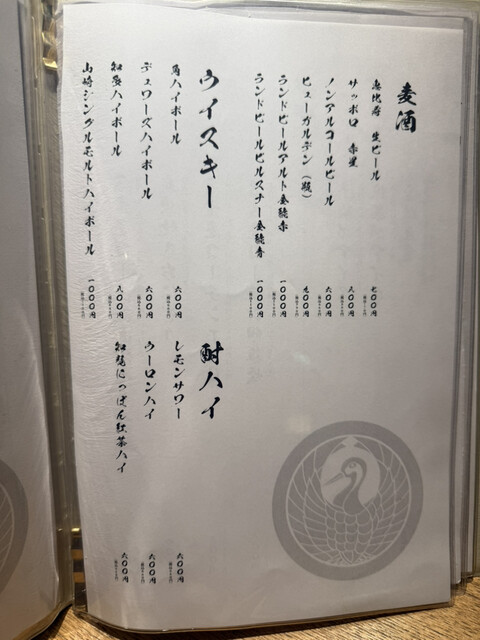 麦酒
恵比寿 生ビール 七〇〇円
サッポロ 赤星 八〇〇円
ノンアルコールビール 六〇〇円
ヒューガルデン（瓶） 九〇〇円
ランドビールアルト金穂赤 一〇〇〇円
ランドビールピルスナー金穂青 一〇〇〇円
ウイスキー
角ハイボール 六〇〇円
デュワーズハイボール 六〇〇円
知多ハイボール 八〇〇円
山崎シングルモルトハイボール 一〇〇〇円
酎ハイ
レモンサワー 六〇〇円
ウーロンハイ 六〇〇円
知覧にっぽん紅茶ハイ 六〇〇円